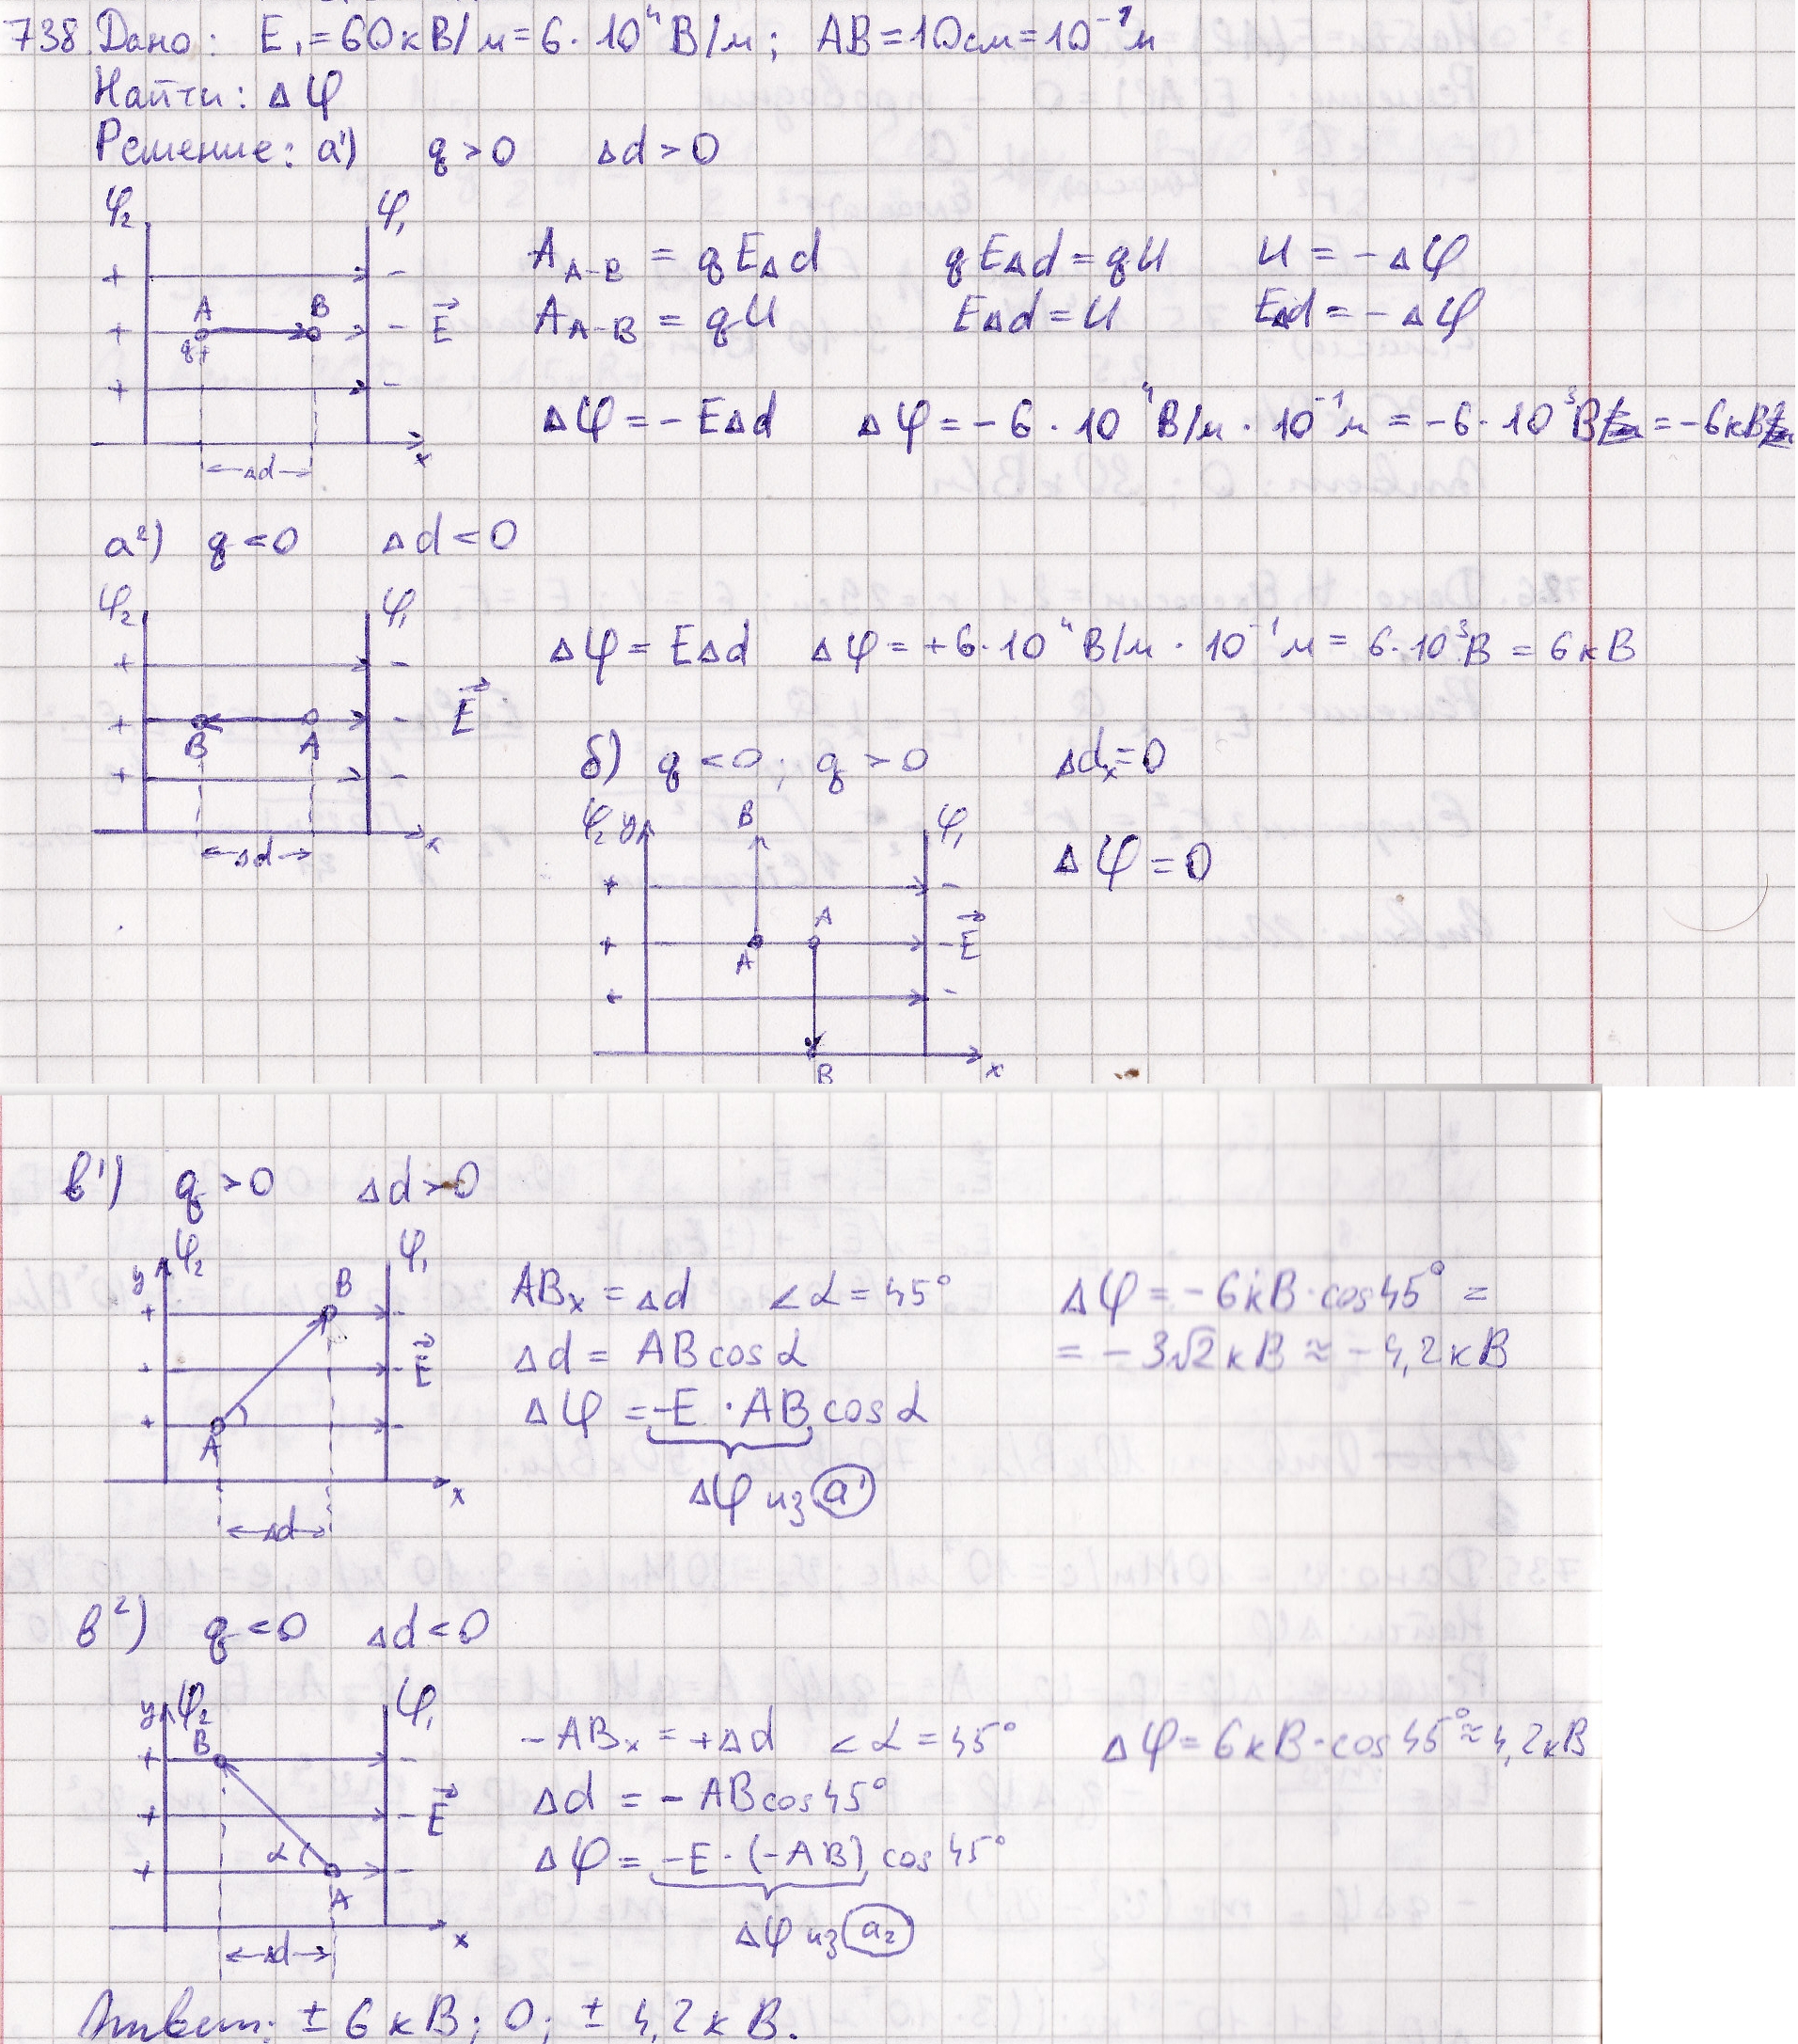 738. Дано: E₁=60кВ/м=6·10⁴В/м; AB=10см=10⁻¹м
Найти: Δφ
Решение: а¹) q>0 Δd>0
φ₂ φ₁
+ -
A B
+ - E⃗
q+
+ -
x
Δd
A_A-B = qEΔd qEΔd=qU U=-Δφ
A_A-B = qU EΔd=U EΔd=-Δφ
Δφ=-EΔd Δφ=-6·10⁴В/м·10⁻¹м=-6·10³В=-6кВ
а²) q<0 Δd<0
φ₂ φ₁
+ -
+ - E⃗
B A
+ -
x
Δd
Δφ=EΔd Δφ=+6·10⁴В/м·10⁻¹м=6·10³В=6кВ
б) q<0; q>0 Δdₓ=0
φ₂ y B φ₁
+ -
A
+ - E⃗
A
+ -
B x
Δφ=0
в¹) q>0 Δd>0
y φ₂ B φ₁
+ -
+ - E⃗
+ -
A
x
Δd
ABₓ=Δd ∠α=45°
Δd=ABcosα
Δφ=-E·ABcosα
Δφ из а¹
Δφ=-6кВ·cos45°=
=-3√2кВ≈-4,2кВ
в²) q<0 Δd<0
y φ₂ φ₁
B
+ -
+ - E⃗
α
+ -
A
x
Δd
-ABₓ=+Δd ∠α=45°
Δd=-ABcos45°
Δφ=-E·(-AB)cos45°
Δφ из а₂
Δφ=6кВ·cos45°≈4,2кВ
Ответ: ±6кВ; 0; ±4,2кВ.